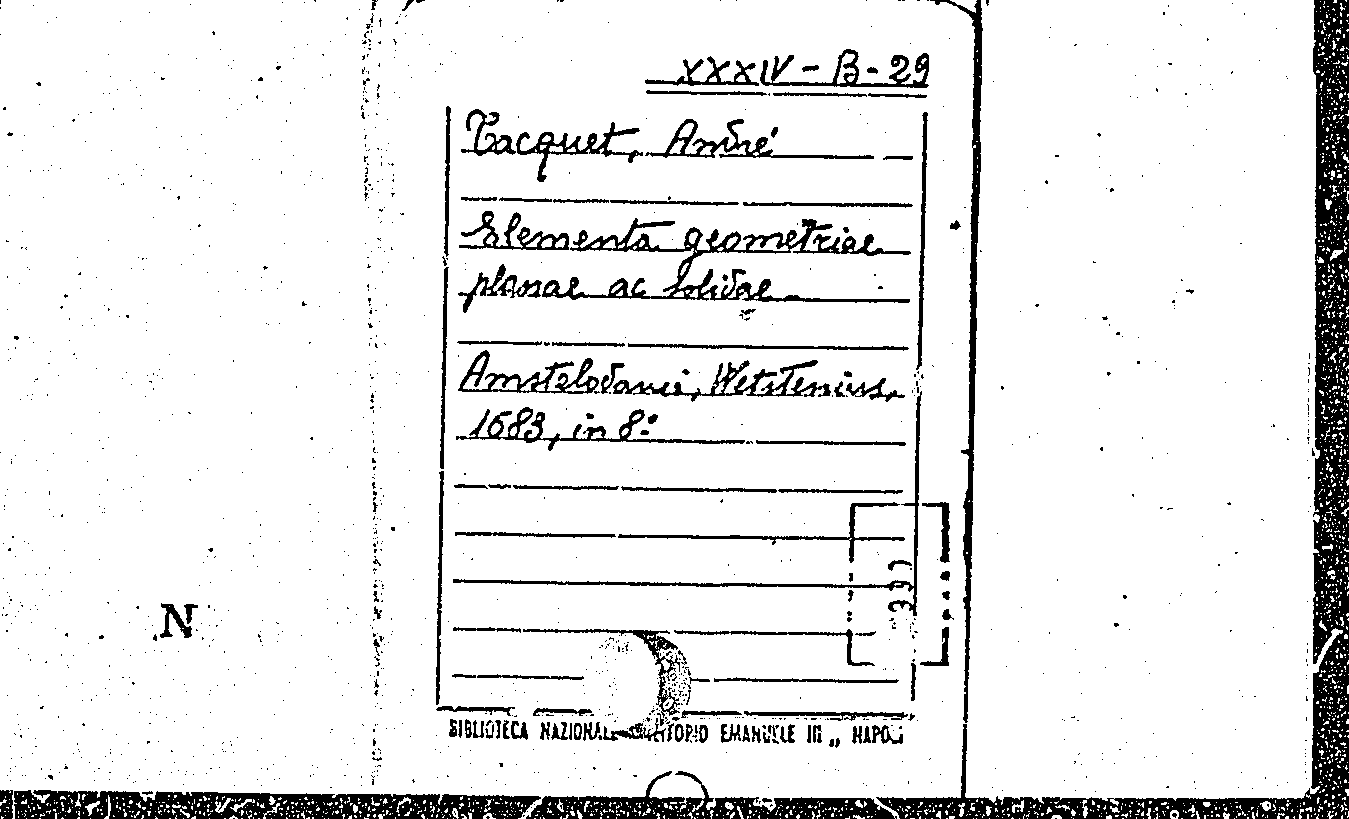 XXXIV - B - 29
Tacquet, André
Elementa geometriae
planae ac solidae
Amstelodami, Wetstenius,
1683, in 8º
N
BIBLIOTECA NAZIONALE VITTORIO EMANUELE III „ NAPOLI